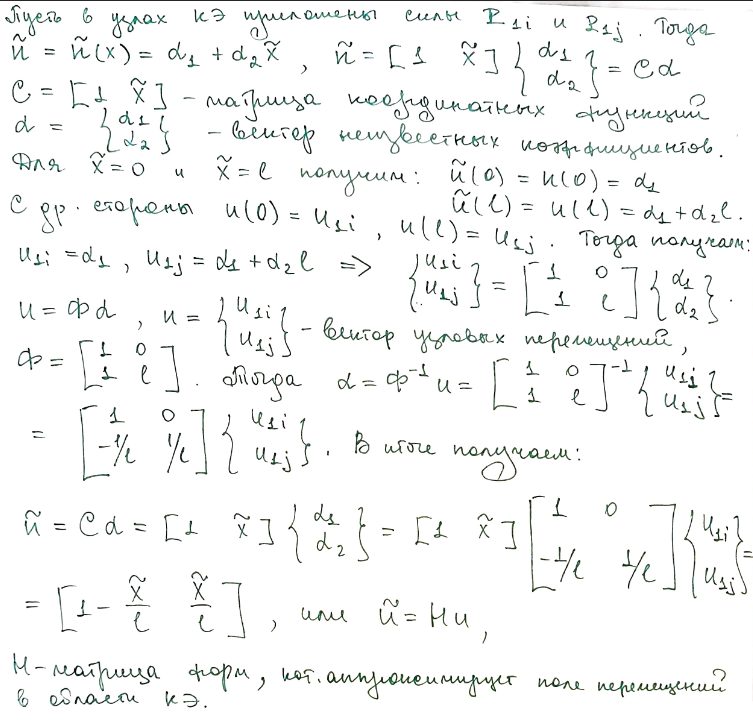 Пусть в узлах КЭ приложены силы P₁ᵢ и P₁ⱼ. Тогда
ũ = ũ(x) = α₁ + α₂x̃ , ũ = [1 x̃] {α₁ α₂} = Cα
C = [1 x̃] - матрица координатных функций
α = {α₁ α₂} - вектор неизвестных коэффициентов.
Для x̃ = 0 и x̃ = l получим: ũ(0) = u(0) = α₁
ũ(l) = u(l) = α₁ + α₂l.
С др. стороны u(0) = u₁ᵢ , u(l) = u₁ⱼ. Тогда получаем:
u₁ᵢ = α₁ , u₁ⱼ = α₁ + α₂l => {u₁ᵢ u₁ⱼ} = [1 0 1 l] {α₁ α₂}.
u = Фα , u = {u₁ᵢ u₁ⱼ} - вектор узловых перемещений,
Ф = [1 0 1 l]. Тогда α = Ф⁻¹u = [1 0 1 l]⁻¹ {u₁ⱼ u₁ⱼ} =
= [1 0 -1/l 1/l] {u₁ᵢ u₁ⱼ}. В итоге получаем:
ũ = Cα = [1 x̃] {α₁ α₂} = [1 x̃] [1 0 -1/l 1/l] {u₁ᵢ u₁ⱼ} =
= [1 - x̃/l x̃/l] , или ũ = Hu,
H-матрица форм, кот. аппроксимирует поле перемещений
в области КЭ.